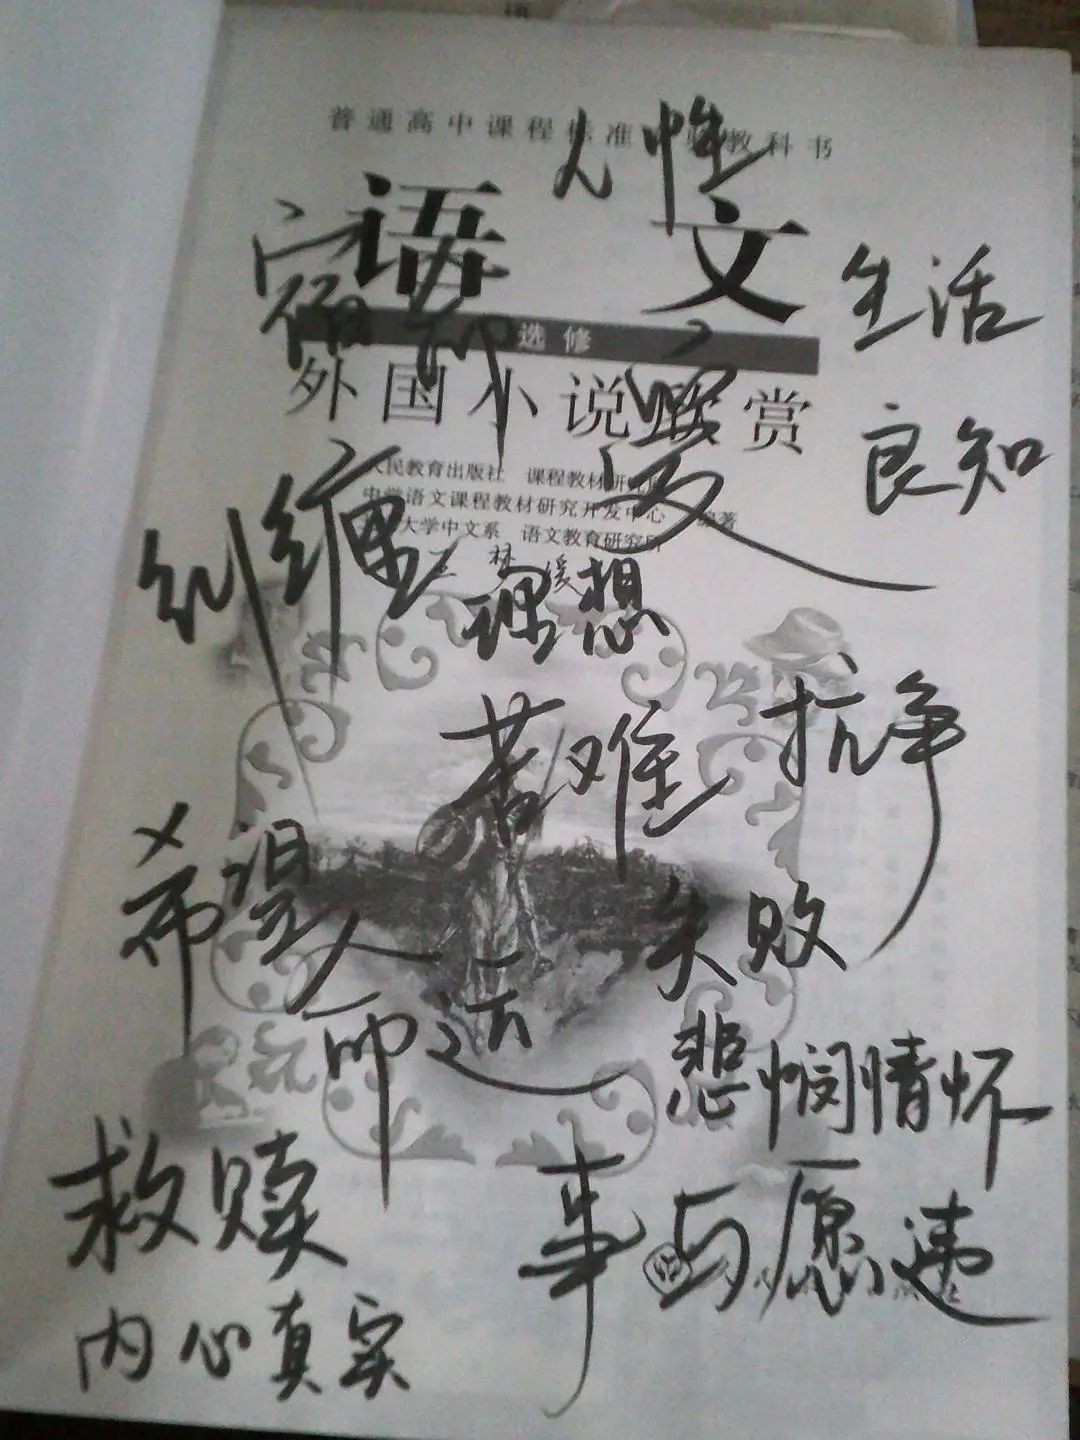 普通高中课程标准实验教科书
人性
语文
宿命
生活
选修
外国小说欣赏
爱
良知
人民教育出版社 课程教材研究所
中学语文课程教材研究开发中心 编著
大学中文系 语文教育研究所
纠缠
理想
苦难
抗争
希望
失败
命运
悲悯情怀
救赎
事与愿违
内心真实